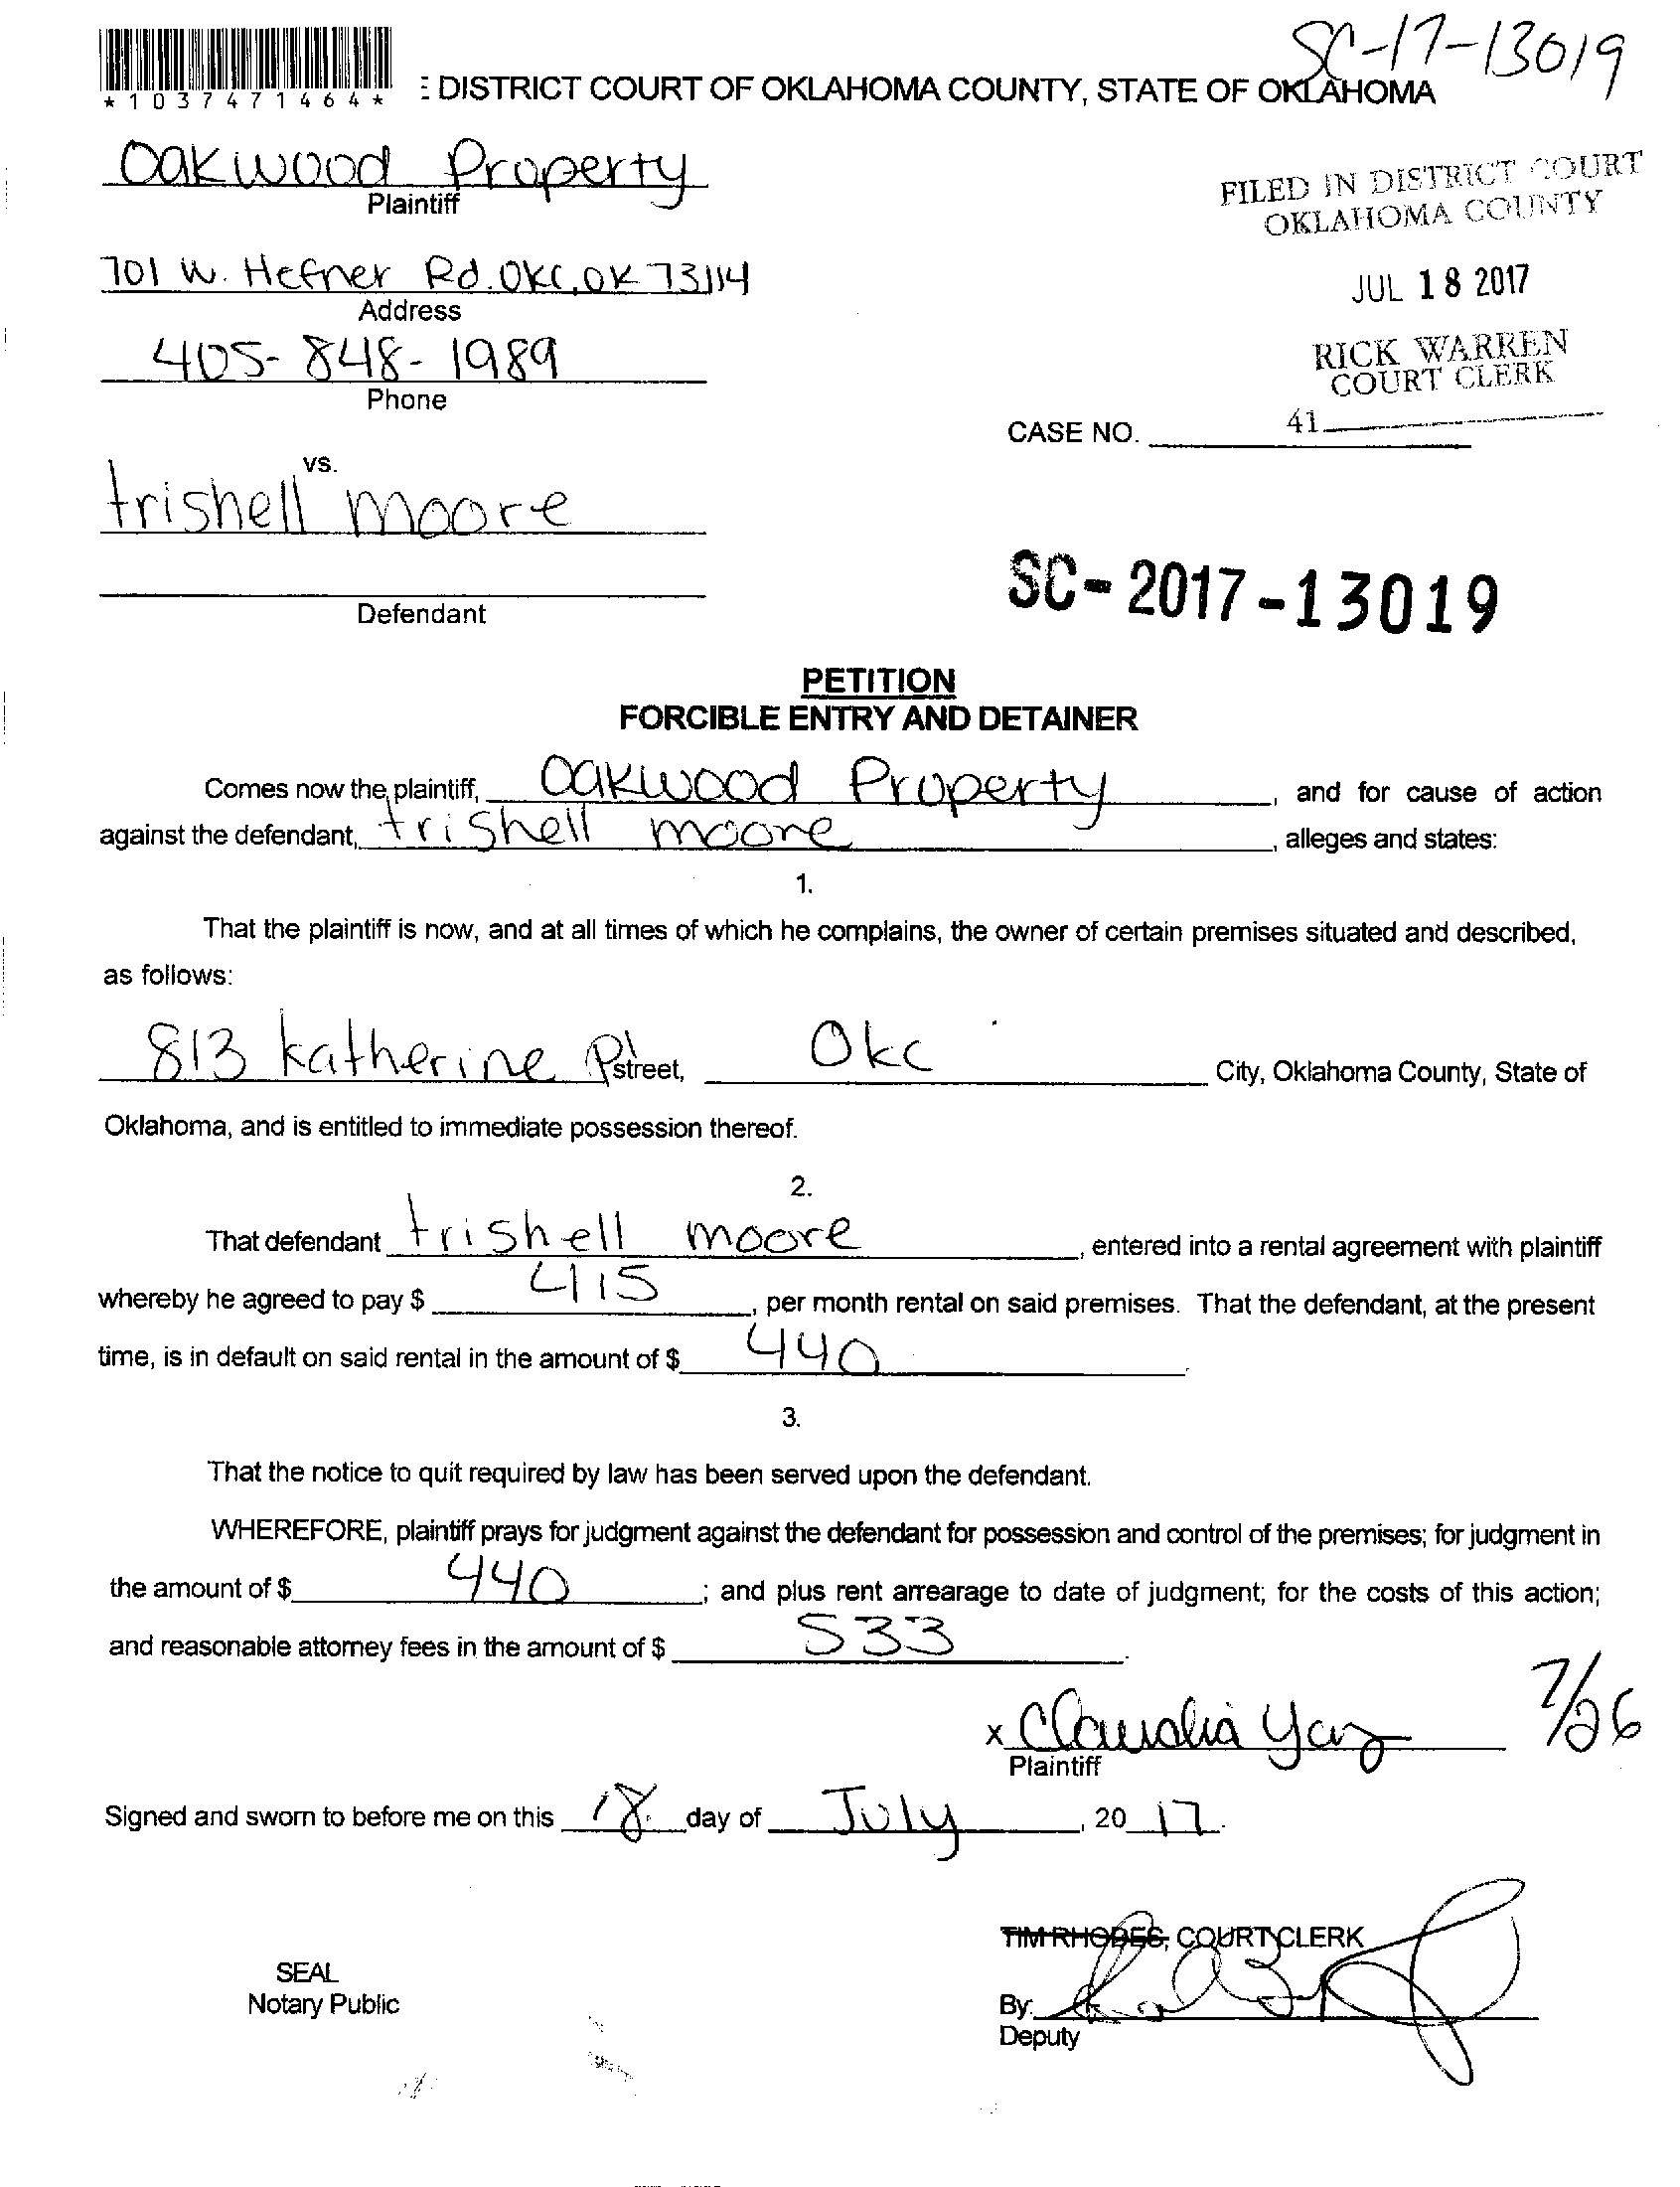 SC-17-13019
*1037471464*
E DISTRICT COURT OF OKLAHOMA COUNTY, STATE OF OKLAHOMA
Oakwood Property
Plaintiff
FILED IN DISTRICT COURT
OKLAHOMA COUNTY
701 W. Hefner Rd. OKC, OK 73114
Address
JUL 18 2017
405-848-1989
Phone
RICK WARREN
COURT CLERK
CASE NO.
41
vs.
trishell moore
Defendant
SC-2017-13019
PETITION
FORCIBLE ENTRY AND DETAINER
Comes now the plaintiff, Oakwood Property, and for cause of action
against the defendant, trishell moore, alleges and states:
1.
That the plaintiff is now, and at all times of which he complains, the owner of certain premises situated and described,
as follows:
813 katherine Pl street, Okc City, Oklahoma County, State of
Oklahoma, and is entitled to immediate possession thereof.
2.
That defendant trishell moore, entered into a rental agreement with plaintiff
whereby he agreed to pay $ 415, per month rental on said premises. That the defendant, at the present
time, is in default on said rental in the amount of $ 440.
3.
That the notice to quit required by law has been served upon the defendant.
WHEREFORE, plaintiff prays for judgment against the defendant for possession and control of the premises; for judgment in
the amount of $ 440; and plus rent arrearage to date of judgment; for the costs of this action;
and reasonable attorney fees in the amount of $ 533.
x Claudia Yaz 7/26
Plaintiff
Signed and sworn to before me on this 18 day of July, 20 17.
TIM RHODES, COURT CLERK
SEAL
Notary Public
By:
Deputy